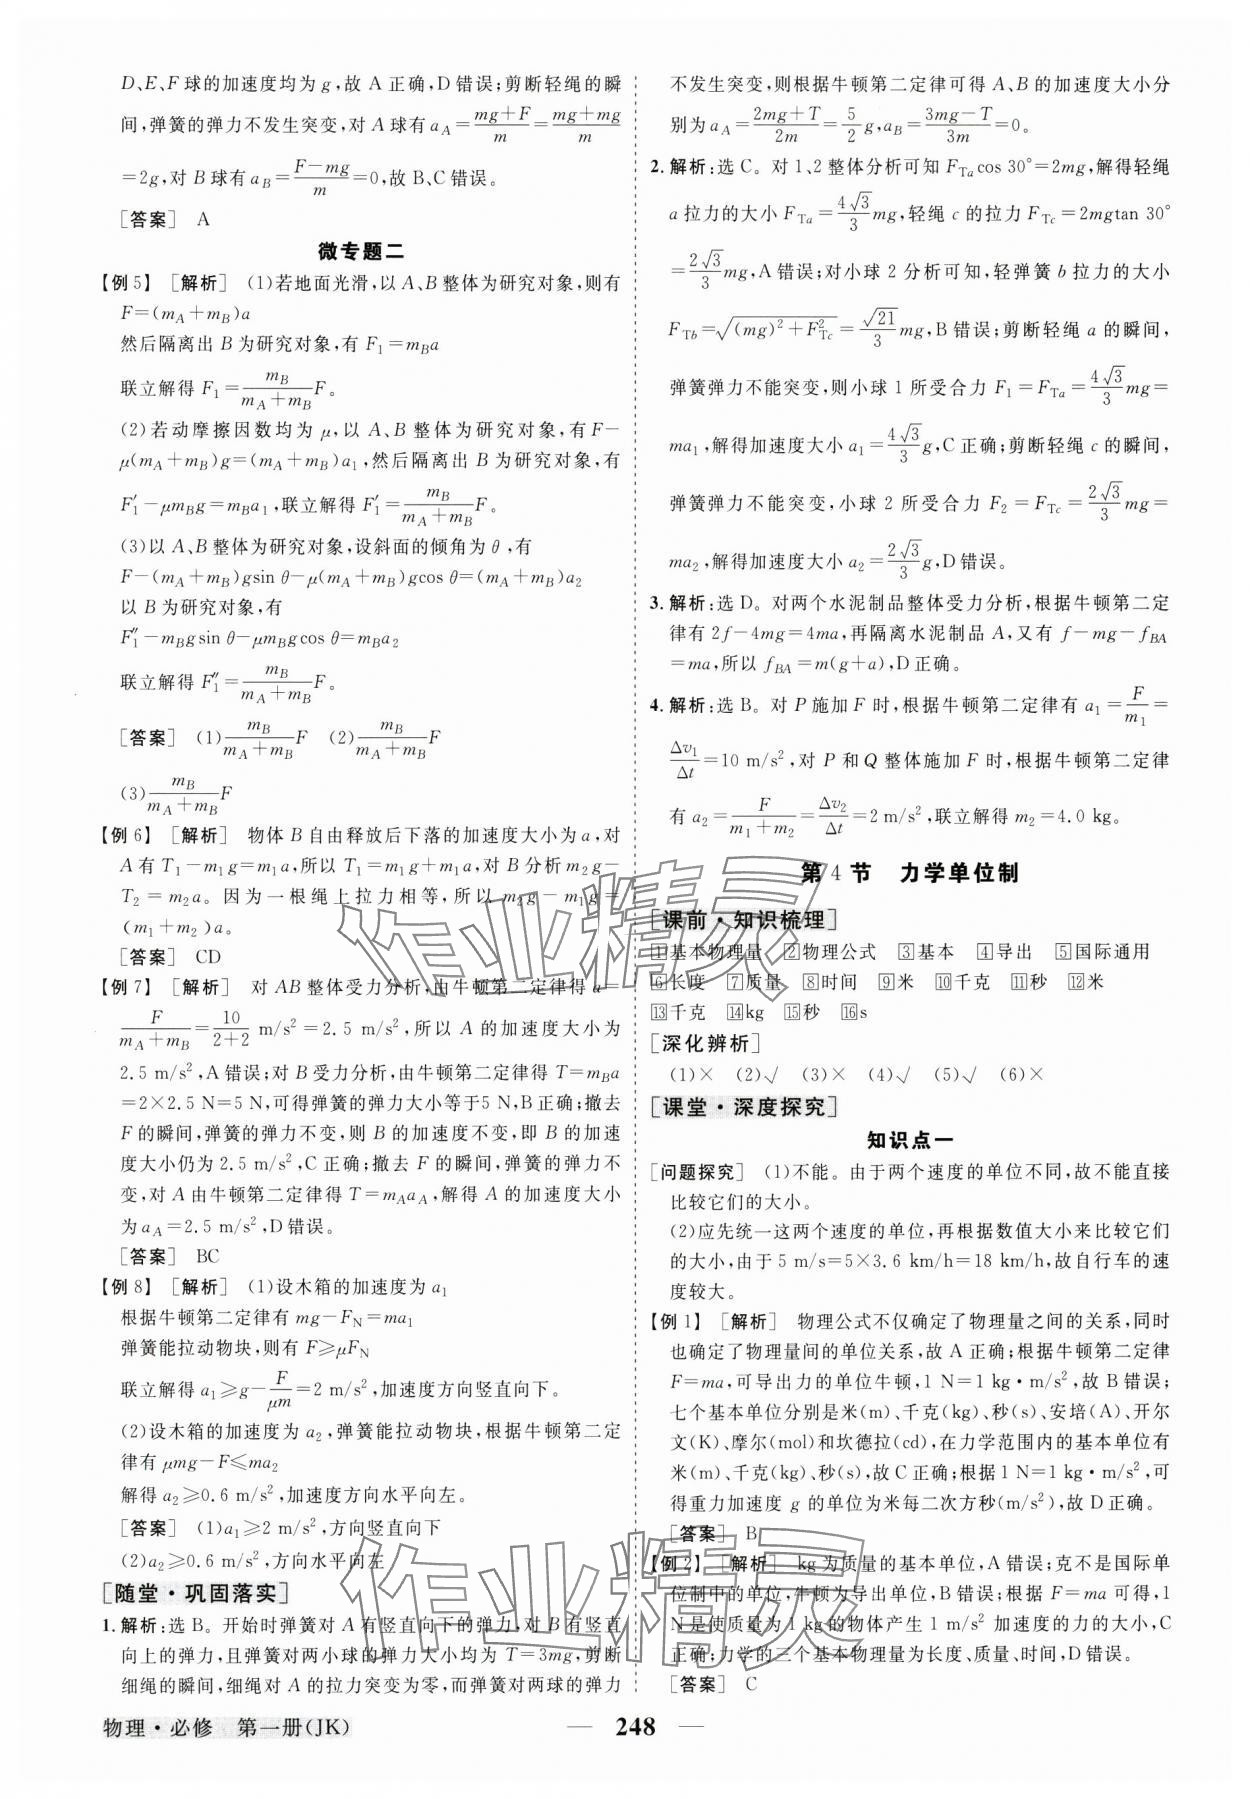 D、E、F球的加速度均为g,故A正确,D错误;剪断轻绳的瞬
间,弹簧的弹力不发生突变,对A球有a_A=(mg+F)/m=(mg+mg)/m
=2g,对B球有a_B=(F-mg)/m=0,故B、C错误。
[答案] A
微专题二
【例5】 [解析] (1)若地面光滑,以A、B整体为研究对象,则有
F=(m_A+m_B)a
然后隔离出B为研究对象,有F₁=m_Ba
联立解得F₁=m_B/(m_A+m_B)F。
(2)若动摩擦因数均为μ,以A、B整体为研究对象,有F-
μ(m_A+m_B)g=(m_A+m_B)a₁,然后隔离出B为研究对象,有
F₁′-μm_Bg=m_Ba₁,联立解得F₁′=m_B/(m_A+m_B)F。
(3)以A、B整体为研究对象,设斜面的倾角为θ,有
F-(m_A+m_B)gsin θ-μ(m_A+m_B)gcos θ=(m_A+m_B)a₂
以B为研究对象,有
F₁″-m_Bgsin θ-μm_Bgcos θ=m_Ba₂
联立解得F₁″=m_B/(m_A+m_B)F。
[答案] (1)m_B/(m_A+m_B)F (2)m_B/(m_A+m_B)F
(3)m_B/(m_A+m_B)F
【例6】 [解析] 物体B自由释放后下落的加速度大小为a,对
A有T₁-m₁g=m₁a,所以T₁=m₁g+m₁a,对B分析m₂g-
T₂=m₂a。因为一根绳上拉力相等,所以m₂g-m₁g=
(m₁+m₂)a。
[答案] CD
【例7】 [解析] 对AB整体受力分析,由牛顿第二定律得a=
F/(m_A+m_B)=10/(2+2) m/s²=2.5 m/s²,所以A的加速度大小为
2.5 m/s²,A错误;对B受力分析,由牛顿第二定律得T=m_Ba
=2×2.5 N=5 N,可得弹簧的弹力大小等于5 N,B正确;撤去
F的瞬间,弹簧的弹力不变,则B的加速度不变,即B的加速
度大小仍为2.5 m/s²,C正确;撤去F的瞬间,弹簧的弹力不
变,对A由牛顿第二定律得T=m_Aa_A,解得A的加速度大小
为a_A=2.5 m/s²,D错误。
[答案] BC
【例8】 [解析] (1)设木箱的加速度为a₁
根据牛顿第二定律有mg-F_N=ma₁
弹簧能拉动物块,则有F≥μF_N
联立解得a₁≥g-F/(μm)=2 m/s²,加速度方向竖直向下。
(2)设木箱的加速度为a₂,弹簧能拉动物块,根据牛顿第二定
律有μmg-F≤ma₂
解得a₂≥0.6 m/s²,加速度方向水平向左。
[答案] (1)a₁≥2 m/s²,方向竖直向下
(2)a₂≥0.6 m/s²,方向水平向左
[随堂·巩固落实]
1.解析:选B。开始时弹簧对A有竖直向下的弹力,对B有竖直
向上的弹力,且弹簧对两小球的弹力大小均为T=3mg,剪断
细绳的瞬间,细绳对A的拉力突变为零,而弹簧对两球的弹力
不发生突变,则根据牛顿第二定律可得A、B的加速度大小分
别为a_A=(2mg+T)/2m=5/2g,a_B=(3mg-T)/3m=0。
2.解析:选C。对1、2整体分析可知F_Ta cos 30°=2mg,解得轻绳
a拉力的大小F_Ta=4√3/3mg,轻绳c的拉力F_Tc=2mgtan 30°
=2√3/3mg,A错误;对小球2分析可知,轻弹簧b拉力的大小
F_Tb=√((mg)²+F_Tc²)=√21/3mg,B错误;剪断轻绳a的瞬间,
弹簧弹力不能突变,则小球1所受合力F₁=F_Ta=4√3/3mg=
ma₁,解得加速度大小a₁=4√3/3g,C正确;剪断轻绳c的瞬间,
弹簧弹力不能突变,小球2所受合力F₂=F_Tc=2√3/3mg=
ma₂,解得加速度大小a₂=2√3/3g,D错误。
3.解析:选D。对两个水泥制品整体受力分析,根据牛顿第二定
律有2f-4mg=4ma,再隔离水泥制品A,又有f-mg-f_BA
=ma,所以f_BA=m(g+a),D正确。
4.解析:选B。对P施加F时,根据牛顿第二定律有a₁=F/m₁=
Δv₁/Δt=10 m/s²,对P和Q整体施加F时,根据牛顿第二定律
有a₂=F/(m₁+m₂)=Δv₂/Δt=2 m/s²,联立解得m₂=4.0 kg。
第4节 力学单位制
[课前·知识梳理]
1基本物理量 2物理公式 3基本 4导出 5国际通用
6长度 7质量 8时间 9米 10千克 11秒 12米
13千克 14kg 15秒 16s
[深化辨析]
(1)× (2)√ (3)× (4)√ (5)√ (6)×
[课堂·深度探究]
知识点一
[问题探究] (1)不能。由于两个速度的单位不同,故不能直接
比较它们的大小。
(2)应先统一这两个速度的单位,再根据数值大小来比较它们
的大小,由于5 m/s=5×3.6 km/h=18 km/h,故自行车的速
度较大。
【例1】 [解析] 物理公式不仅确定了物理量之间的关系,同时
也确定了物理量间的单位关系,故A正确;根据牛顿第二定律
F=ma,可导出力的单位牛顿,1 N=1 kg·m/s²,故B错误;
七个基本单位分别是米(m)、千克(kg)、秒(s)、安培(A)、开尔
文(K)、摩尔(mol)和坎德拉(cd),在力学范围内的基本单位有
米(m)、千克(kg)、秒(s),故C正确;根据1 N=1 kg·m/s²,可
得重力加速度g的单位为米每二次方秒(m/s²),故D正确。
[答案] B
【例2】 [解析] kg为质量的基本单位,A错误;克不是国际单
位制中的基本单位,牛顿为导出单位,B错误;根据F=ma可得,1
N是使质量为1 kg的物体产生1 m/s²加速度的力的大小,C
正确;力学的三个基本物理量为长度、质量、时间,D错误。
[答案] C
物理·必修 第一册(JK)
— 248 —
作业精灵
作业精灵